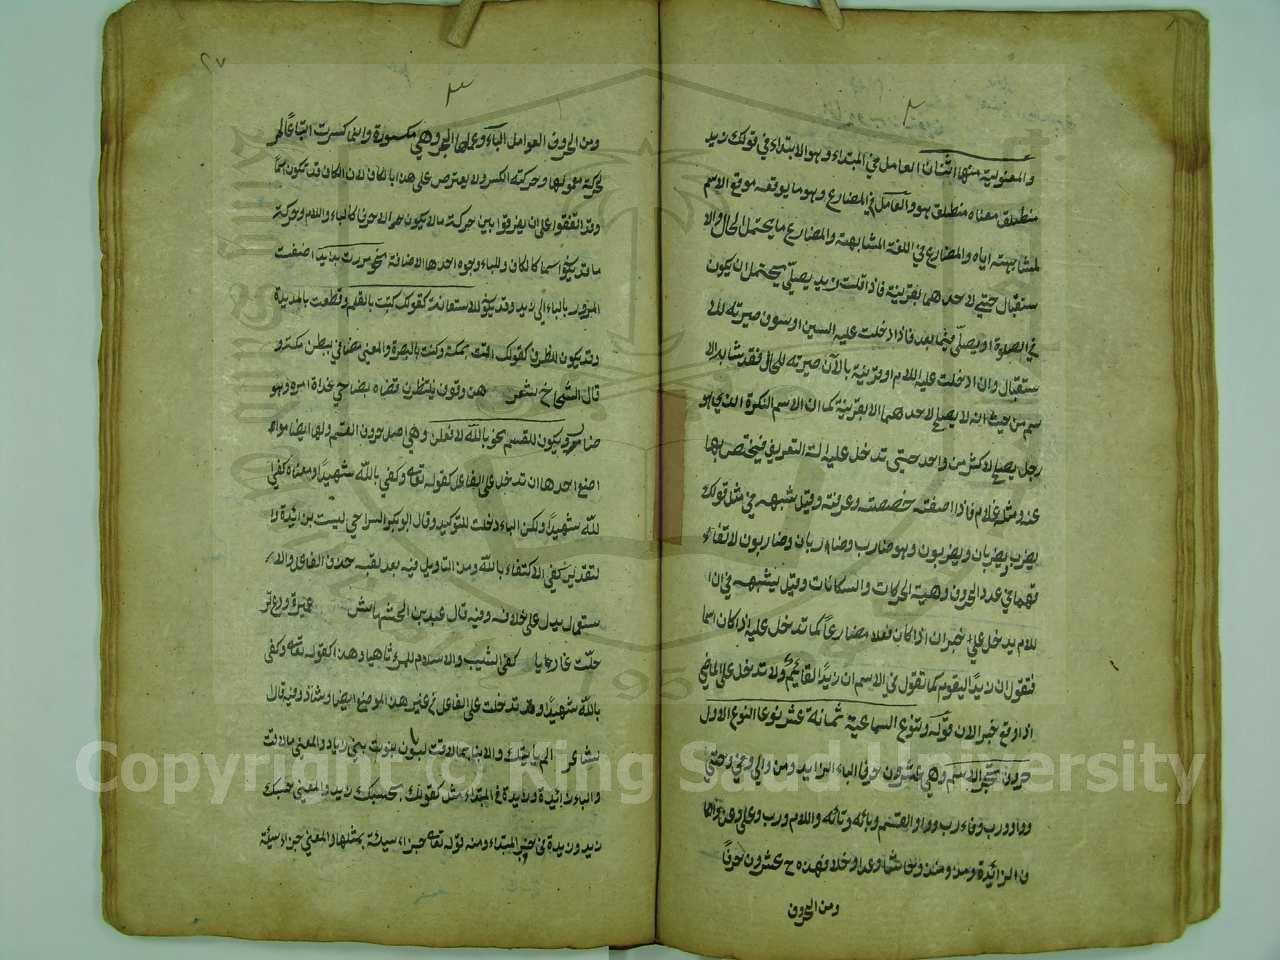 ٢
والمعنوية منها اثنان العامل في المبتداء وهو الابتداء في قولك زيد
منطلق معناه منطلق هو والعامل في المضارع وهو ما يوقعه موقع الاسم
لمشابهته اياه والمضارع في اللغة المشابهة والمضارع ما يحتمل الحال والا
ستقبال حتي لاحدهما بقرينة فاذا قلت زيد يصلّي يحتمل ان يكون
في الصلوة او يصلّي فيما بعد فاذا دخلت عليه السين او سوف صيرته للا
ستقبال وان ادخلت عليه اللام او قرينة بالآن صيرته للحال فقد شابه الا
سم من حيث انه لا يصلح لاحدهما الا بقرينة كما ان الاسم النكرة الذي هو
رجل يصلح لاكثر من واحد حتي تدخل عليه لة التعريف فيختص بها
عنه ومثله غلام فاذا اضفته خصصته وعرفته وقيل شبهه في مثل قولك
يضرب يضربان ويضربون وهو ضارب وضاربان وضاربون لاتفاء
قهما في عدد الحروف وهيئة الحركات والسكانات وقيل يشبهه في ان ا
للام يدخل علي خبر ان اذا كان فعلا مضارعاً كما تدخل عليه اذا كان اسما
فتقول ان زيدًا ليقوم كما تقول في الاسم ان زيدًا لقائم ولا تدخل على الماضي
اذا وقع خبر الان قوله وتنوع السماعية ثمانة عشر نوعا النوع الاول
حروف تجر الاسم وهي عشرون حرفًا الباء الزايد ومن والي وفي وحتي
وواو رب وفاء رب وواو القسم وبائه وتائه واللام ورب وعلي وعن
ن الزائدة ومذ ومنذ وحاشا وعدا وخلا فهذه ح عشرون حرفًا
ومن الحروف
٣
٢٧
ومن الحروف العوامل الباء وعملها الجر وهي مكسورة وانما كسرت اتباعًا لحر
لحركة معمولها وحركته الكسر ولا يعترض على هذا بالكاف لان الكاف قد تكون اسمًا
وقد اتفقوا على ان يفرقوا بين حركة ما لا يكون الا حرفا كالباء واللام وحركة
ما قد يكون اسما كالكاف وللباء وجوه احدها الاضافة نحو مررت بزيد اضفت
المرور بالباء الي زيد وقد يكون للاستعانة كقولك كتبت بالقلم وقطعت بالمدية
وقد يكون للظرف كقولك اقمت بمكة وكنت بالبصرة والمعنى في بطن مكة و
قال الشماخ شعر وهن وقوف ينتظرن قضاءه بضاحي غداة امره وهو
ضامز ويكون للقسم نحو بالله لافعلن وهي اصل حروف القسم ولها ايضا موا
اضع احدها ان تدخل على الفاعل كقوله تعالى وكفي بالله شهيدًا ومعناه كفي ا
لله شهيدًا ولكن الباء دخلت للتوكيد وقال ابو بكر السراجي ليست بزائدة وا
لتقدير كفي الاكتفاء بالله ومن التاويل فيه بعد لقبه حذف الفاعل والا
ستعمال يدل على خلافه وفيه قال عبد بني الحسحاس عميرة ودع ان
حلّت غاديا كفى الشيب والاسلام للمرء ناهيا وهذا كقوله تعالى وكفى
بالله شهيدًا وقد تدخلت على الفاعل في غير هذا الموضع ايضا وشاذ وفيه قال
الشاعر الم ياتيك والانباء بما لاقت لبون بنوت بني زياد والمعني ما لاقت
والباء زائدة وزيدة في المبتداء مثل كقولك بحسبك زيد والمعني حسبك
زيد وزيدة في خبر المبتداء ومنه قوله تعالى جزاء سيئة بمثلها والمعني جزاء سيئة
Copyright © King Saud University